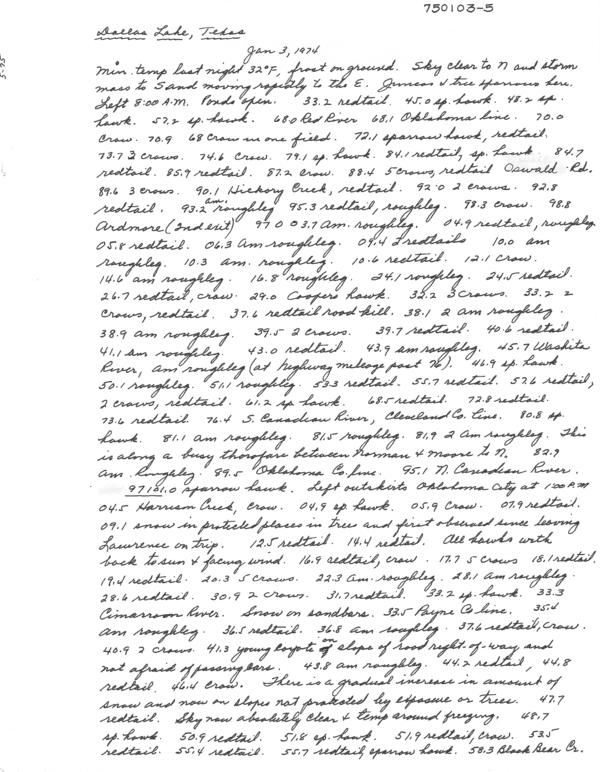 750103-5
5-75
Dallas Lake, Texas
Jan 3, 1974
Min. temp last night 32°F, frost on ground. Sky clear to N and storm
mass to S and moving rapidly to the E. Juncos & tree sparrows here.
Left 8:00 A.M. Ponds open. 33.2 redtail. 45.0 sp. hawk. 48.2 sp.
hawk. 57.2 sp. hawk. 68.0 Red River 68.1 Oklahoma line. 70.0
Crow. 70.9 68 Crow in one field. 72.1 sparrow hawk, redtail.
73.7 3 crows. 74.6 Crow. 79.1 sp. hawk. 84.1 redtail, sp. hawk. 84.7
redtail. 85.9 redtail. 87.2 crow. 88.4 5 crows, redtail Oswald Rd.
89.6 3 crows. 90.1 Hickory Creek, redtail. 92.0 2 crows. 92.8
redtail. 93.2 am. roughleg 95.3 redtail, roughleg. 98.3 crow. 98.8
Ardmore (2nd exit) 97003.7 Am. roughleg. 04.9 redtail, roughleg.
05.8 redtail. 06.3 Am roughleg. 09.4 2 redtails 10.0 am
roughleg. 10.3 am. roughleg. 10.6 redtail. 12.1 crow.
14.6 am roughleg. 16.8 roughleg. 24.1 roughleg. 24.5 redtail.
26.7 redtail, crow. 29.0 Coopers hawk. 32.2 3 crows. 33.2 2
crows, redtail. 37.6 redtail road kill. 38.1 2 am roughleg.
38.9 am roughleg. 39.5 2 crows. 39.7 redtail. 40.6 redtail.
41.1 am roughleg. 43.0 redtail. 43.9 am roughleg. 45.7 Washita
River, am roughleg (at highway mileage post 76). 46.9 sp. hawk.
50.1 roughleg. 51.1 roughleg. 53.3 redtail. 55.7 redtail. 57.6 redtail,
2 crows, redtail. 61.2 sp. hawk. 68.5 redtail. 72.8 redtail.
73.6 redtail. 76.4 S. Canadian River, Cleveland Co. line. 80.8 sp.
hawk. 81.1 am roughleg. 81.5 roughleg. 81.9 2 Am roughleg. This
is along a busy thorofare between Norman & Moore to N. 82.9
am. Roughleg. 89.5 Oklahoma Co. line. 95.1 N. Canadian River.
97101.0 sparrow hawk. Left outskirts Oklahoma City at 1:00 P.M
04.5 Harrison Creek, crow. 04.9 sp. hawk. 05.9 Crow. 07.9 redtail.
09.1 snow in protected places in trees and first observed since leaving
Lawrence on trip. 12.5 redtail. 14.4 redtail. All hawks with
back to sun & facing wind. 16.9 redtail, crow. 17.7 5 crows 18.1 redtail.
19.4 redtail. 20.3 5 crows. 22.3 Am. roughleg. 28.1 am roughleg.
28.6 redtail. 30.9 2 crows. 31.7 redtail. 33.2 sp. hawk. 33.3
Cimarroon River. Snow on sandbars. 33.5 Payne Co line. 35.4
am roughleg. 36.5 redtail. 36.8 am roughleg. 37.6 redtail, crow.
40.9 2 crows. 41.3 young coyote on slope of road right-of-way and
not afraid of passing cars. 43.8 am roughleg. 44.2 redtail, 44.8
redtail. 46.4 crow. There is a gradual increase in amount of
snow and now on slopes not protected by exposure or trees. 47.7
redtail. Sky now absolutely clear & temp around freezing. 48.7
sp. hawk. 50.9 redtail. 51.8 sp. hawk. 51.9 redtail, crow. 53.5
redtail. 55.4 redtail. 55.7 redtail, sparrow hawk. 58.3 Black Bear Cr.